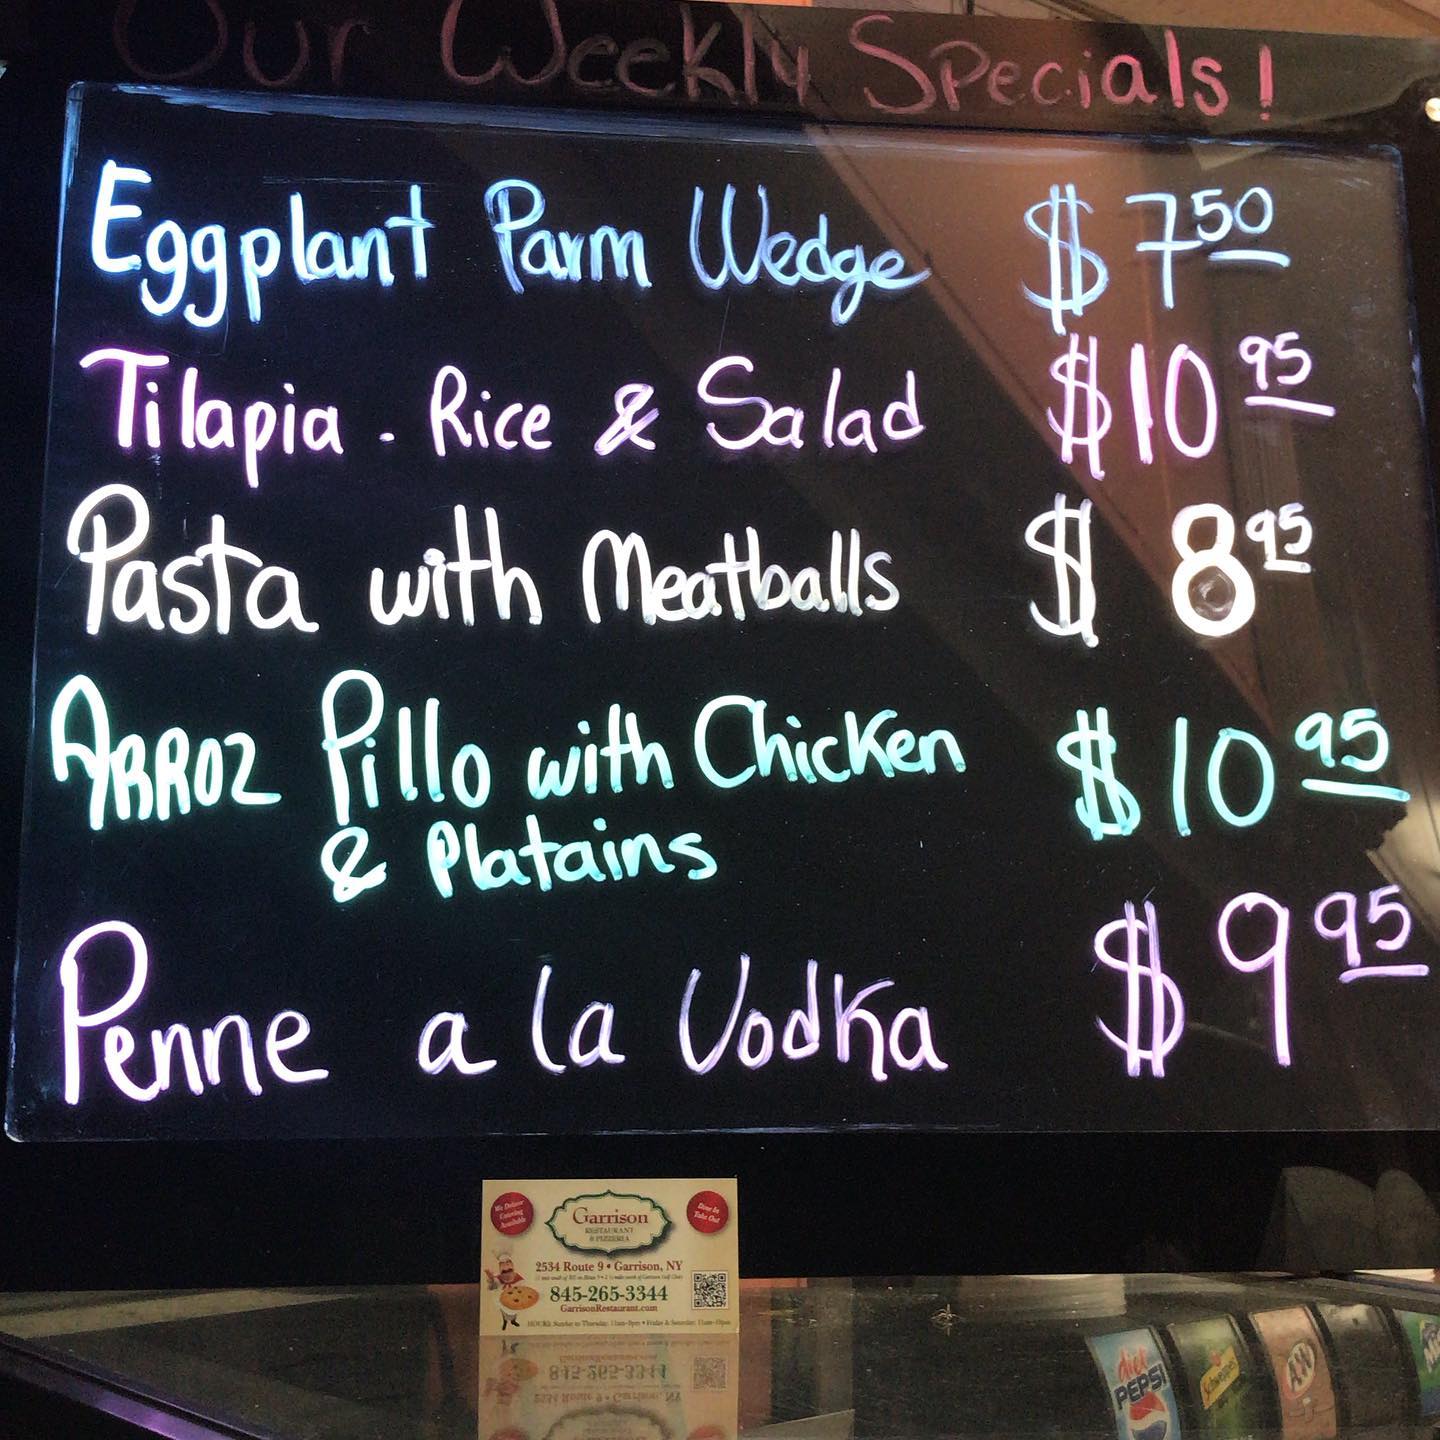 Our Weekly Specials!
Eggplant Parm Wedge $7.50
Tilapia. Rice & Salad $10.95
Pasta with Meatballs $8.95
ARROZ Pillo with Chicken $10.95
& Platains
Penne a la Vodka $9.95
We Deliver
Catering
Available
Garrison
RESTAURANT
& PIZZERIA
Dine In
Take Out
2534 Route 9 • Garrison, NY
845-265-3344
GarrisonRestaurant.com
HOURS: Sunday to Thursday: 11am-9pm • Friday & Saturday: 11am-10pm
diet
PEPSI
Schweppes
A&W